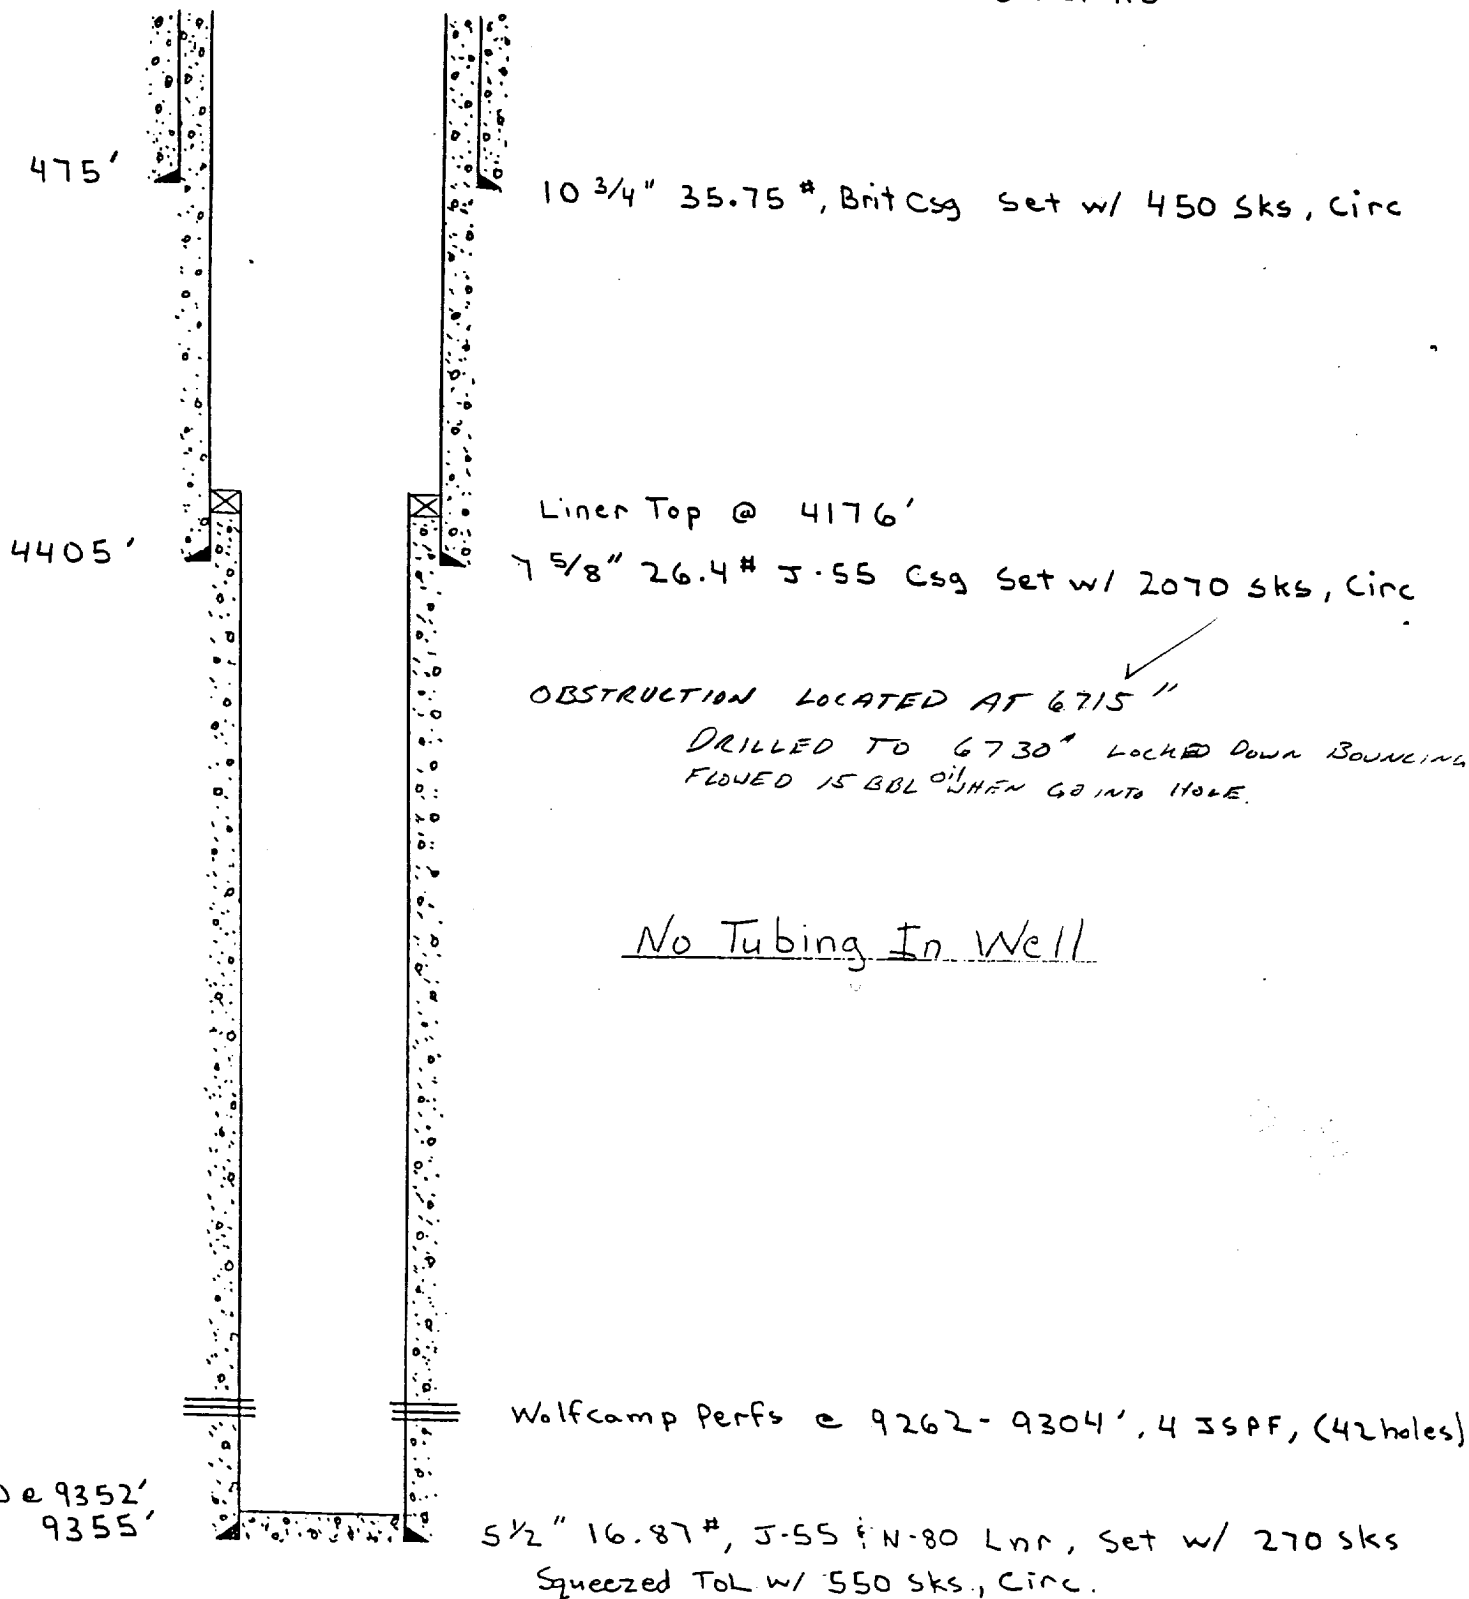 475'
10 3/4" 35.75 #, Brit Csg Set w/ 450 Sks, Circ
Liner Top @ 4176'
4405'
7 5/8" 26.4 # J-55 Csg Set w/ 2070 sks, Circ
OBSTRUCTION LOCATED AT 6715 "
DRILLED TO 6730" LOCKED DOWN BOUNCING
FLOWED 15 BBL oil WHEN GO INTO HOLE.
No Tubing In Well
Wolfcamp Perfs @ 9262-9304', 4 JSPF, (42 holes)
@ 9352'
9355'
5 1/2" 16.87 #, J-55 & N-80 Lnr, Set w/ 270 sks
Squeezed TOL w/ 550 sks., Circ.